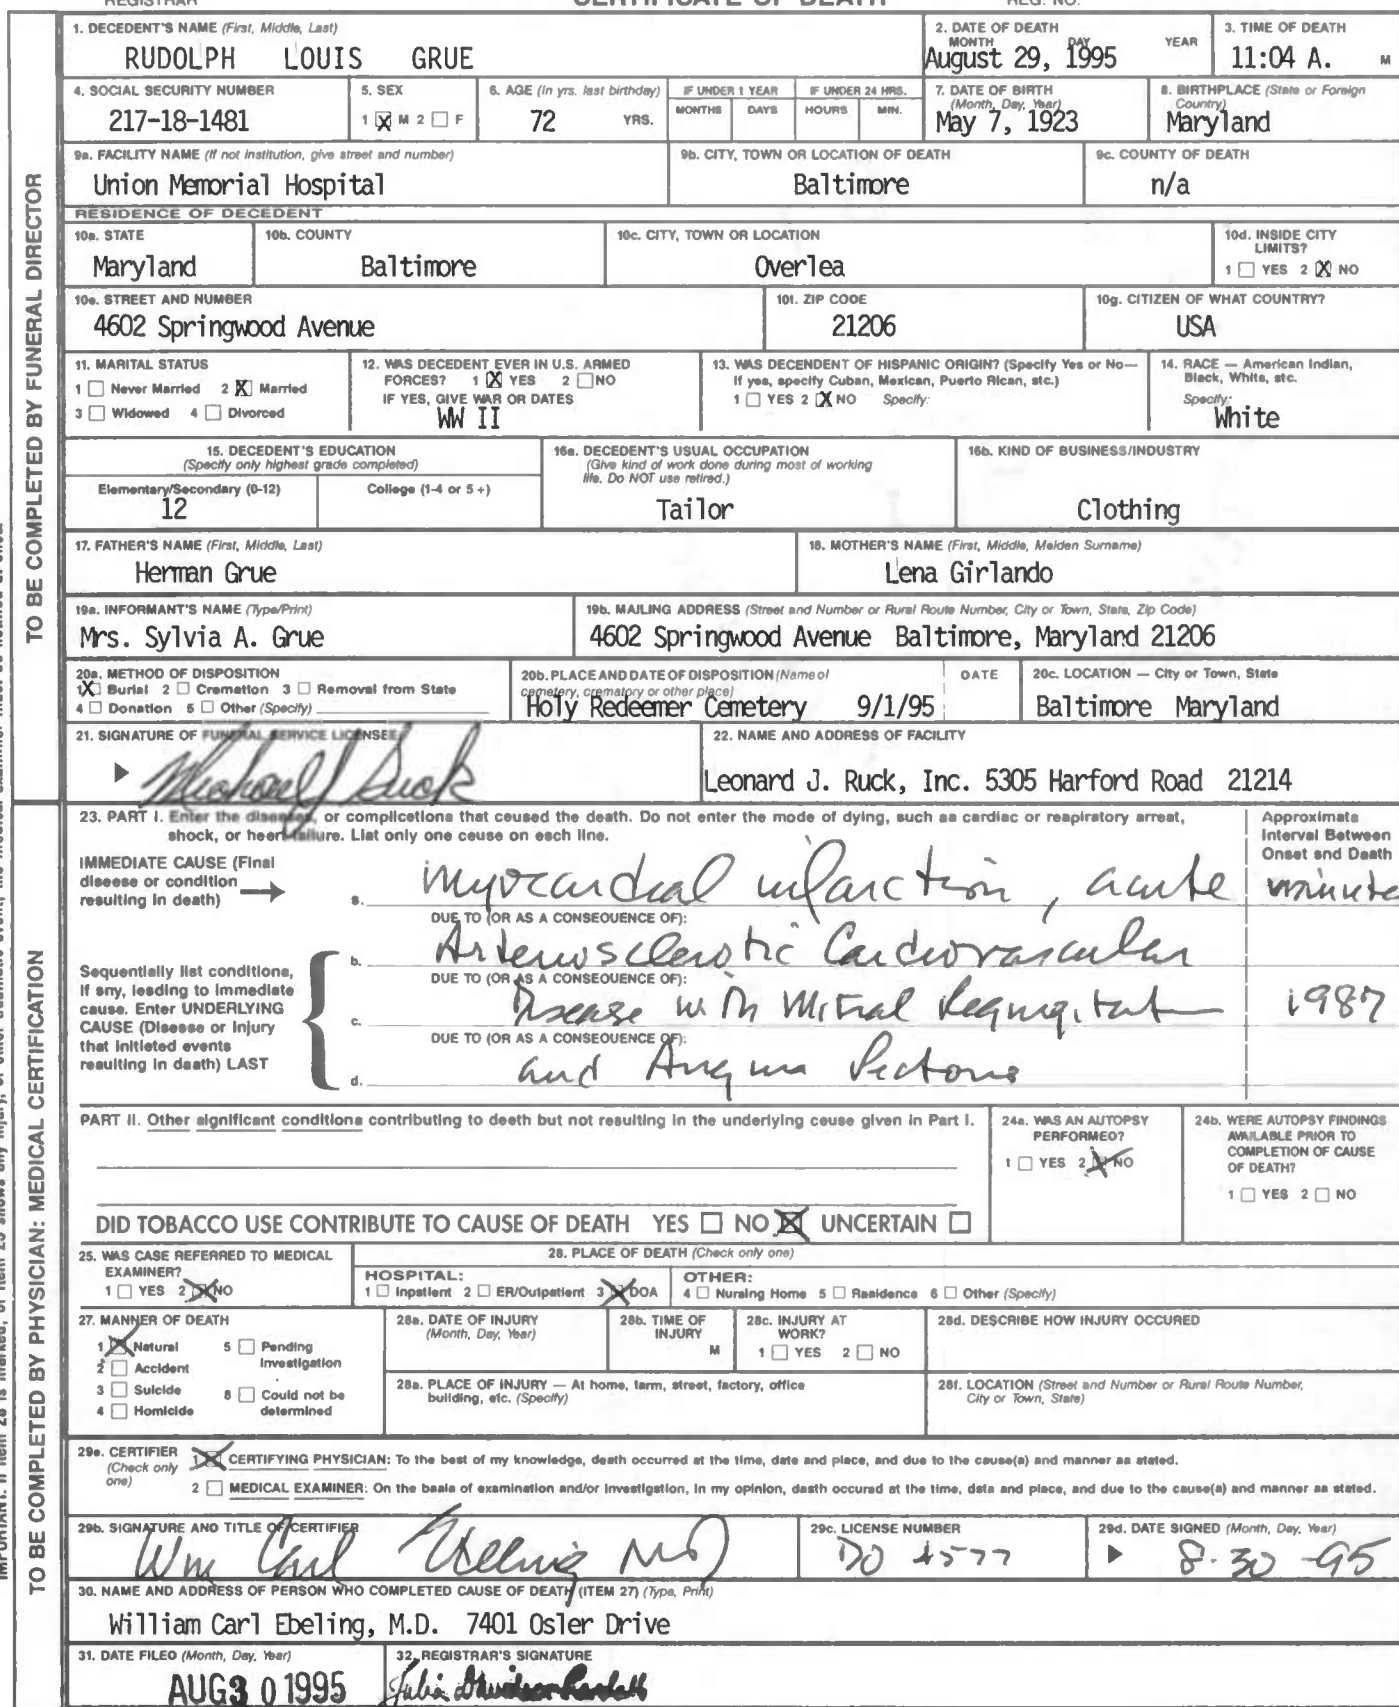 REGISTRAR CERTIFICATE OF DEATH REG. NO.
1. DECEDENT'S NAME (First, Middle, Last)
RUDOLPH LOUIS GRUE
2. DATE OF DEATH
MONTH DAY YEAR
August 29, 1995
3. TIME OF DEATH
11:04 A. M
4. SOCIAL SECURITY NUMBER
217-18-1481
5. SEX
1 ☒ M 2 ☐ F
6. AGE (In yrs. last birthday)
72 YRS.
IF UNDER 1 YEAR
MONTHS DAYS
IF UNDER 24 HRS.
HOURS MIN.
7. DATE OF BIRTH
(Month, Day, Year)
May 7, 1923
8. BIRTHPLACE (State or Foreign
Country)
Maryland
9a. FACILITY NAME (If not institution, give street and number)
Union Memorial Hospital
9b. CITY, TOWN OR LOCATION OF DEATH
Baltimore
9c. COUNTY OF DEATH
n/a
RESIDENCE OF DECEDENT
10a. STATE
Maryland
10b. COUNTY
Baltimore
10c. CITY, TOWN OR LOCATION
Overlea
10d. INSIDE CITY
LIMITS?
1 ☐ YES 2 ☒ NO
10e. STREET AND NUMBER
4602 Springwood Avenue
10f. ZIP CODE
21206
10g. CITIZEN OF WHAT COUNTRY?
USA
11. MARITAL STATUS
1 ☐ Never Married 2 ☒ Married
3 ☐ Widowed 4 ☐ Divorced
12. WAS DECEDENT EVER IN U.S. ARMED
FORCES? 1 ☒ YES 2 ☐ NO
IF YES, GIVE WAR OR DATES
WW II
13. WAS DECENDENT OF HISPANIC ORIGIN? (Specify Yes or No—
If yes, specify Cuban, Mexican, Puerto Rican, etc.)
1 ☐ YES 2 ☒ NO Specify:
14. RACE — American Indian,
Black, White, etc.
Specify:
White
15. DECEDENT'S EDUCATION
(Specify only highest grade completed)
Elementary/Secondary (0-12) College (1-4 or 5+)
12
16a. DECEDENT'S USUAL OCCUPATION
(Give kind of work done during most of working
life. Do NOT use retired.)
Tailor
16b. KIND OF BUSINESS/INDUSTRY
Clothing
17. FATHER'S NAME (First, Middle, Last)
Herman Grue
18. MOTHER'S NAME (First, Middle, Maiden Surname)
Lena Girlando
19a. INFORMANT'S NAME (Type/Print)
Mrs. Sylvia A. Grue
19b. MAILING ADDRESS (Street and Number or Rural Route Number, City or Town, State, Zip Code)
4602 Springwood Avenue Baltimore, Maryland 21206
20a. METHOD OF DISPOSITION
1 ☒ Burial 2 ☐ Cremation 3 ☐ Removal from State
4 ☐ Donation 5 ☐ Other (Specify)
20b. PLACE AND DATE OF DISPOSITION (Name of
cemetery, crematory or other place)
DATE
Holy Redeemer Cemetery 9/1/95
20c. LOCATION — City or Town, State
Baltimore Maryland
21. SIGNATURE OF FUNERAL SERVICE LICENSEE
Michael J Ruck
22. NAME AND ADDRESS OF FACILITY
Leonard J. Ruck, Inc. 5305 Harford Road 21214
TO BE COMPLETED BY FUNERAL DIRECTOR
23. PART I. Enter the diseases, or complications that caused the death. Do not enter the mode of dying, such as cardiac or respiratory arrest,
shock, or heart failure. List only one cause on each line.
Approximate
Interval Between
Onset and Death
IMMEDIATE CAUSE (Final
disease or condition
resulting in death)
a. Myocardial infarction, acute minute
DUE TO (OR AS A CONSEQUENCE OF):
b. Arteriosclerotic Cardiovascular
DUE TO (OR AS A CONSEQUENCE OF):
c. Disease with Mitral Regurgitat 1987
DUE TO (OR AS A CONSEQUENCE OF):
d. and Angina Pectoris
Sequentially list conditions,
if any, leading to immediate
cause. Enter UNDERLYING
CAUSE (Disease or injury
that initiated events
resulting in death) LAST
PART II. Other significant conditions contributing to death but not resulting in the underlying cause given in Part I.
24a. WAS AN AUTOPSY
PERFORMED?
1 ☐ YES 2 ☒ NO
24b. WERE AUTOPSY FINDINGS
AVAILABLE PRIOR TO
COMPLETION OF CAUSE
OF DEATH?
1 ☐ YES 2 ☐ NO
DID TOBACCO USE CONTRIBUTE TO CAUSE OF DEATH YES ☐ NO ☒ UNCERTAIN ☐
25. WAS CASE REFERRED TO MEDICAL
EXAMINER?
1 ☐ YES 2 ☒ NO
26. PLACE OF DEATH (Check only one)
HOSPITAL:
1 ☐ Inpatient 2 ☐ ER/Outpatient 3 ☒ DOA
OTHER:
4 ☐ Nursing Home 5 ☐ Residence 6 ☐ Other (Specify)
27. MANNER OF DEATH
1 ☒ Natural 5 ☐ Pending
2 ☐ Accident Investigation
3 ☐ Suicide 6 ☐ Could not be
4 ☐ Homicide determined
28a. DATE OF INJURY
(Month, Day, Year)
28b. TIME OF
INJURY
M
28c. INJURY AT
WORK?
1 ☐ YES 2 ☐ NO
28d. DESCRIBE HOW INJURY OCCURED
28e. PLACE OF INJURY — At home, farm, street, factory, office
building, etc. (Specify)
28f. LOCATION (Street and Number or Rural Route Number,
City or Town, State)
29a. CERTIFIER
(Check only
one)
1 ☒ CERTIFYING PHYSICIAN: To the best of my knowledge, death occurred at the time, date and place, and due to the cause(s) and manner as stated.
2 ☐ MEDICAL EXAMINER: On the basis of examination and/or investigation, in my opinion, death occured at the time, date and place, and due to the cause(s) and manner as stated.
29b. SIGNATURE AND TITLE OF CERTIFIER
Wm Carl Ebeling MD
29c. LICENSE NUMBER
DO 4577
29d. DATE SIGNED (Month, Day, Year)
8-30-95
30. NAME AND ADDRESS OF PERSON WHO COMPLETED CAUSE OF DEATH (ITEM 27) (Type, Print)
William Carl Ebeling, M.D. 7401 Osler Drive
31. DATE FILED (Month, Day, Year)
AUG 30 1995
32. REGISTRAR'S SIGNATURE
TO BE COMPLETED BY PHYSICIAN: MEDICAL CERTIFICATION